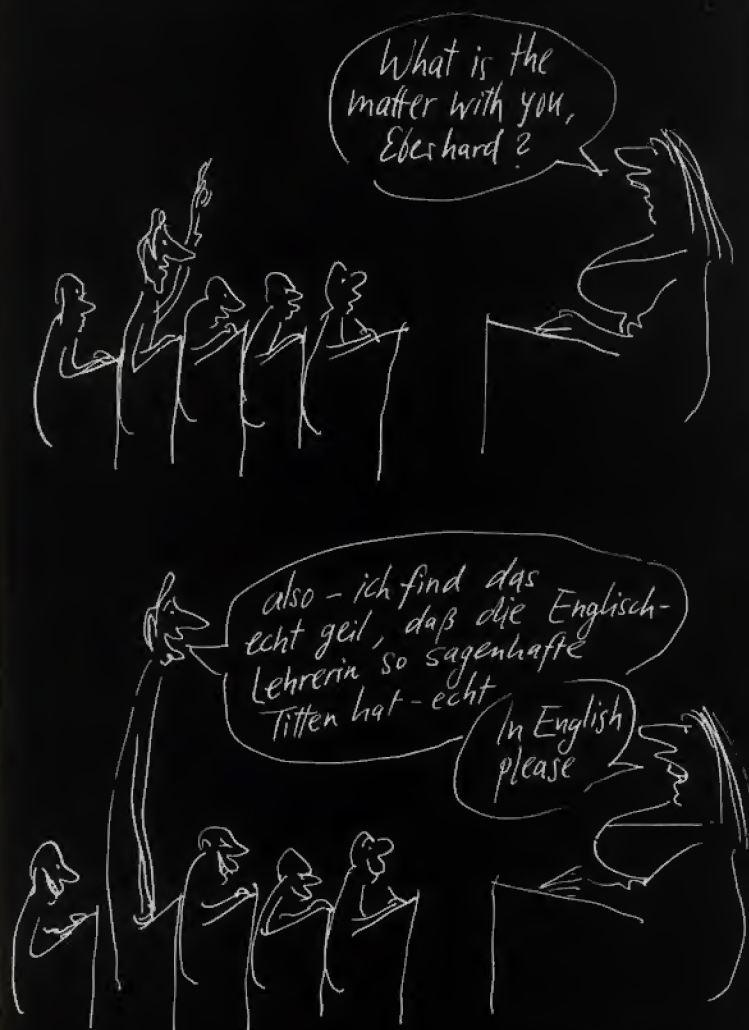 What is the
matter with you,
Eberhard?
also - ich find das
echt geil, daß die Englisch-
Lehrerin so sagenhafte
Titten hat - echt
In English
please